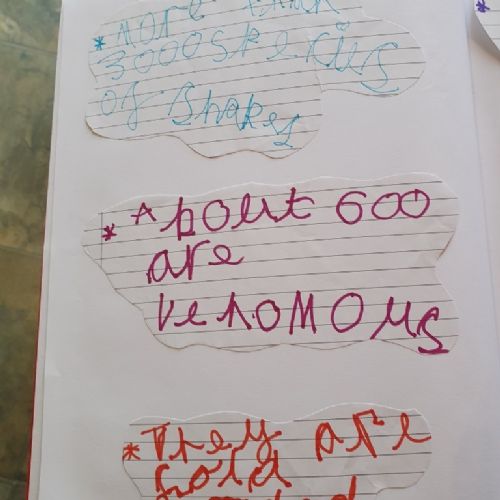 * More than
3000 species
of snakes
* About 600
are
venomous
* They are
cold